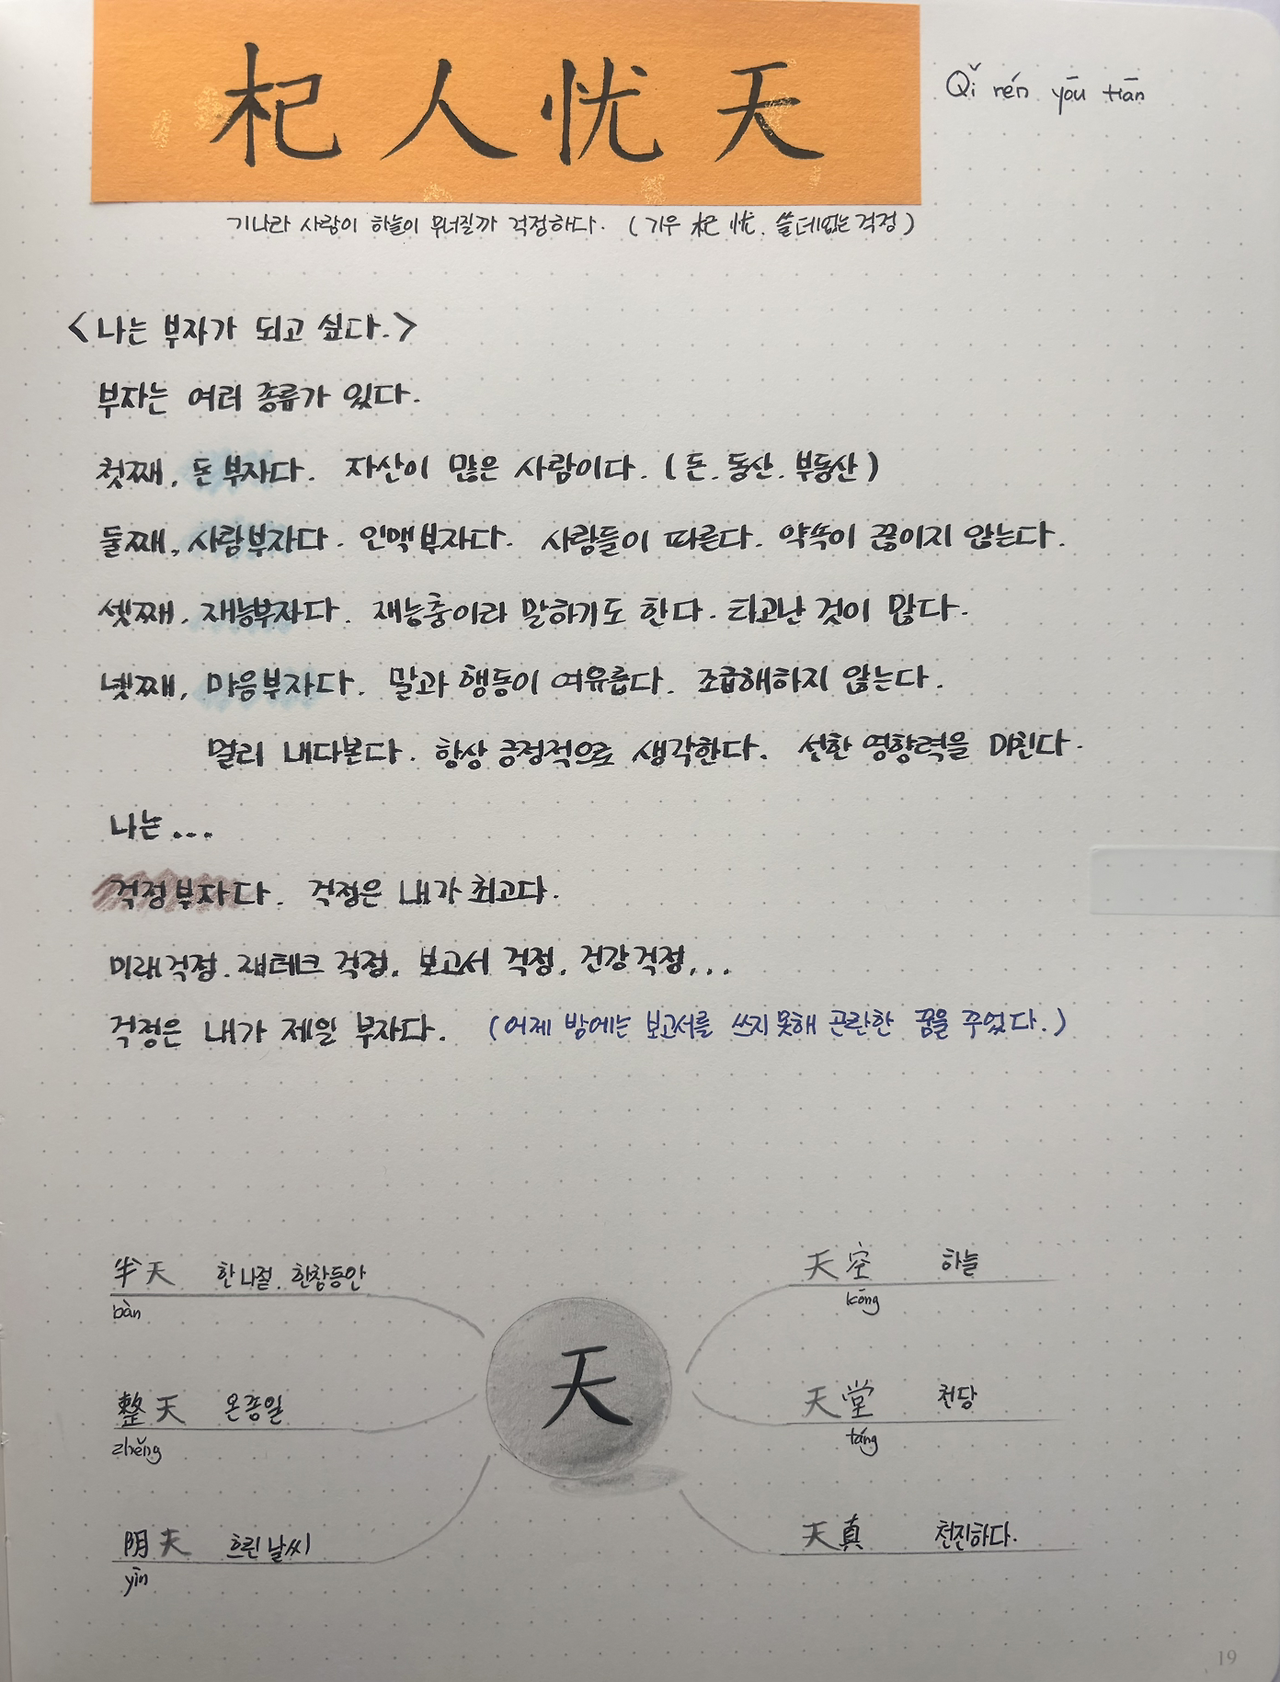 杞人忧天
Qǐ rén yōu tiān
기나라 사람이 하늘이 무너질까 걱정하다. (기우 杞忧. 쓸데없는 걱정)
<나는 부자가 되고 싶다.>
부자는 여러 종류가 있다.
첫째, 돈부자다. 자산이 많은 사람이다. (돈. 동산. 부동산)
둘째, 사람부자다. 인맥부자다. 사람들이 따른다. 약속이 끊이지 않는다.
셋째, 재능부자다. 재능충이라 말하기도 한다. 타고난 것이 많다.
넷째, 마음부자다. 말과 행동이 여유롭다. 조급해하지 않는다.
멀리 내다본다. 항상 긍정적으로 생각한다. 선한 영향력을 미친다.
나는...
걱정부자다. 걱정은 내가 최고다.
미래걱정. 재테크 걱정. 보고서 걱정. 건강걱정...
걱정은 내가 제일 부자다. (어제 밤에는 보고서를 쓰지 못해 곤란한 꿈을 꾸었다.)
半天 한나절. 한참동안
bàn
整天 온종일
zhěng
阴天 흐린 날씨
yīn
天
天空 하늘
kōng
天堂 천당
táng
天真 천진하다.
19